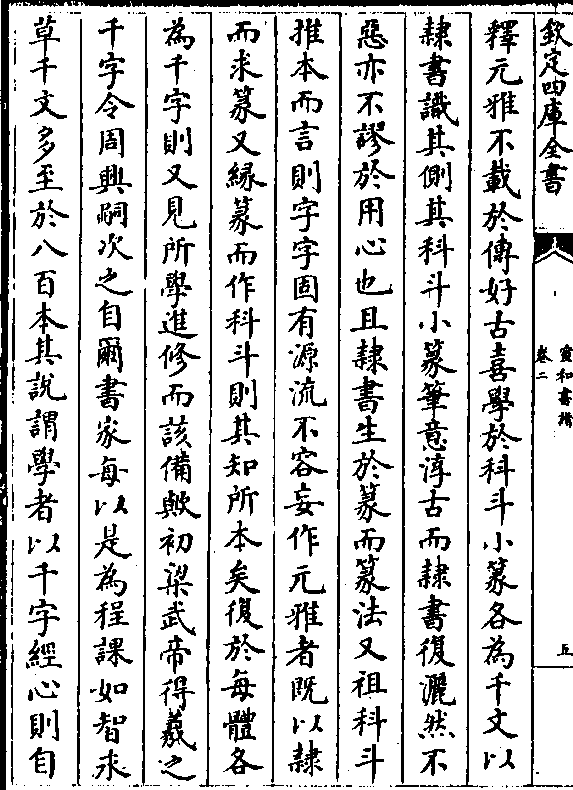 欽定四庫全書
宣和書譜
卷二
五
釋元雅不載於傳好古喜學於科斗小篆各為千文以
隸書識其側其科斗小篆筆意淳古而隸書復灑然不
惡亦不謬於用心也且隸書生於篆而篆法又祖科斗
推本而言則字字固有源流不容妄作元雅者既以隸
而求篆又緣篆而作科斗則其知所本矣復於每體各
為千字則又見所學進修而該備歟初梁武帝得羲之
千字令周興嗣次之自爾書家每以是為程課如智永
草千文多至於八百本其說謂學者以千字經心則自